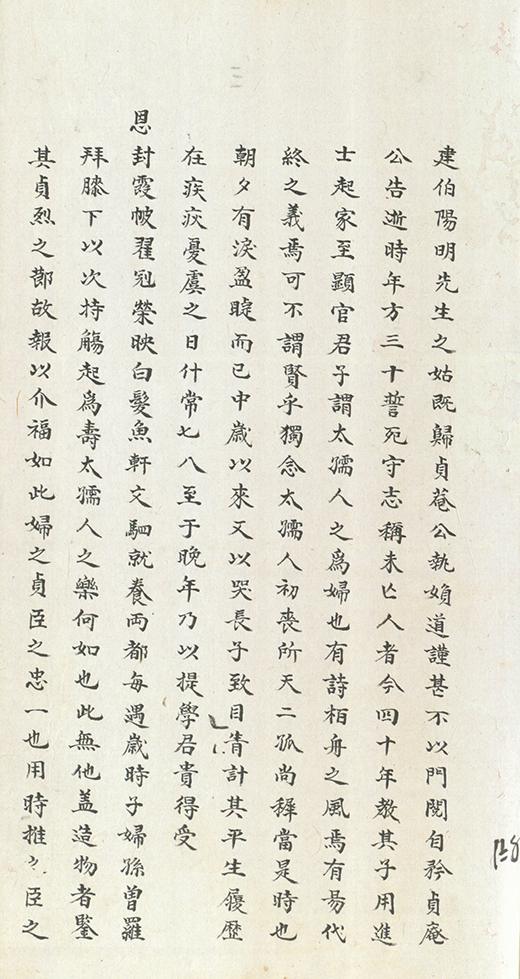 建伯陽明先生之姑既歸貞菴公執婦道謹甚不以門閥自矜貞庵
公告逝時年方三十誓死守志稱未亡人者今四十年教其子用進
士起家至顯官君子謂太孺人之爲婦也有詩柏舟之風焉有易代
終之義焉可不謂賢乎獨念太孺人初喪所天二孤尚稺當是時也
朝夕有淚盈睫而已中歲以來又以哭長子致目眚計其平生履歷
在疾疢憂虞之日什常七八至于晚年乃以提學君貴得受
恩封霞帔翟冠榮映白髮魚軒文駟就養兩都每遇歲時子婦孫曾羅
拜膝下以次持觴起爲壽太孺人之樂何如也此無他盖造物者鑒
其貞烈之節故報以介福如此婦之貞臣之忠一也用時推之臣之